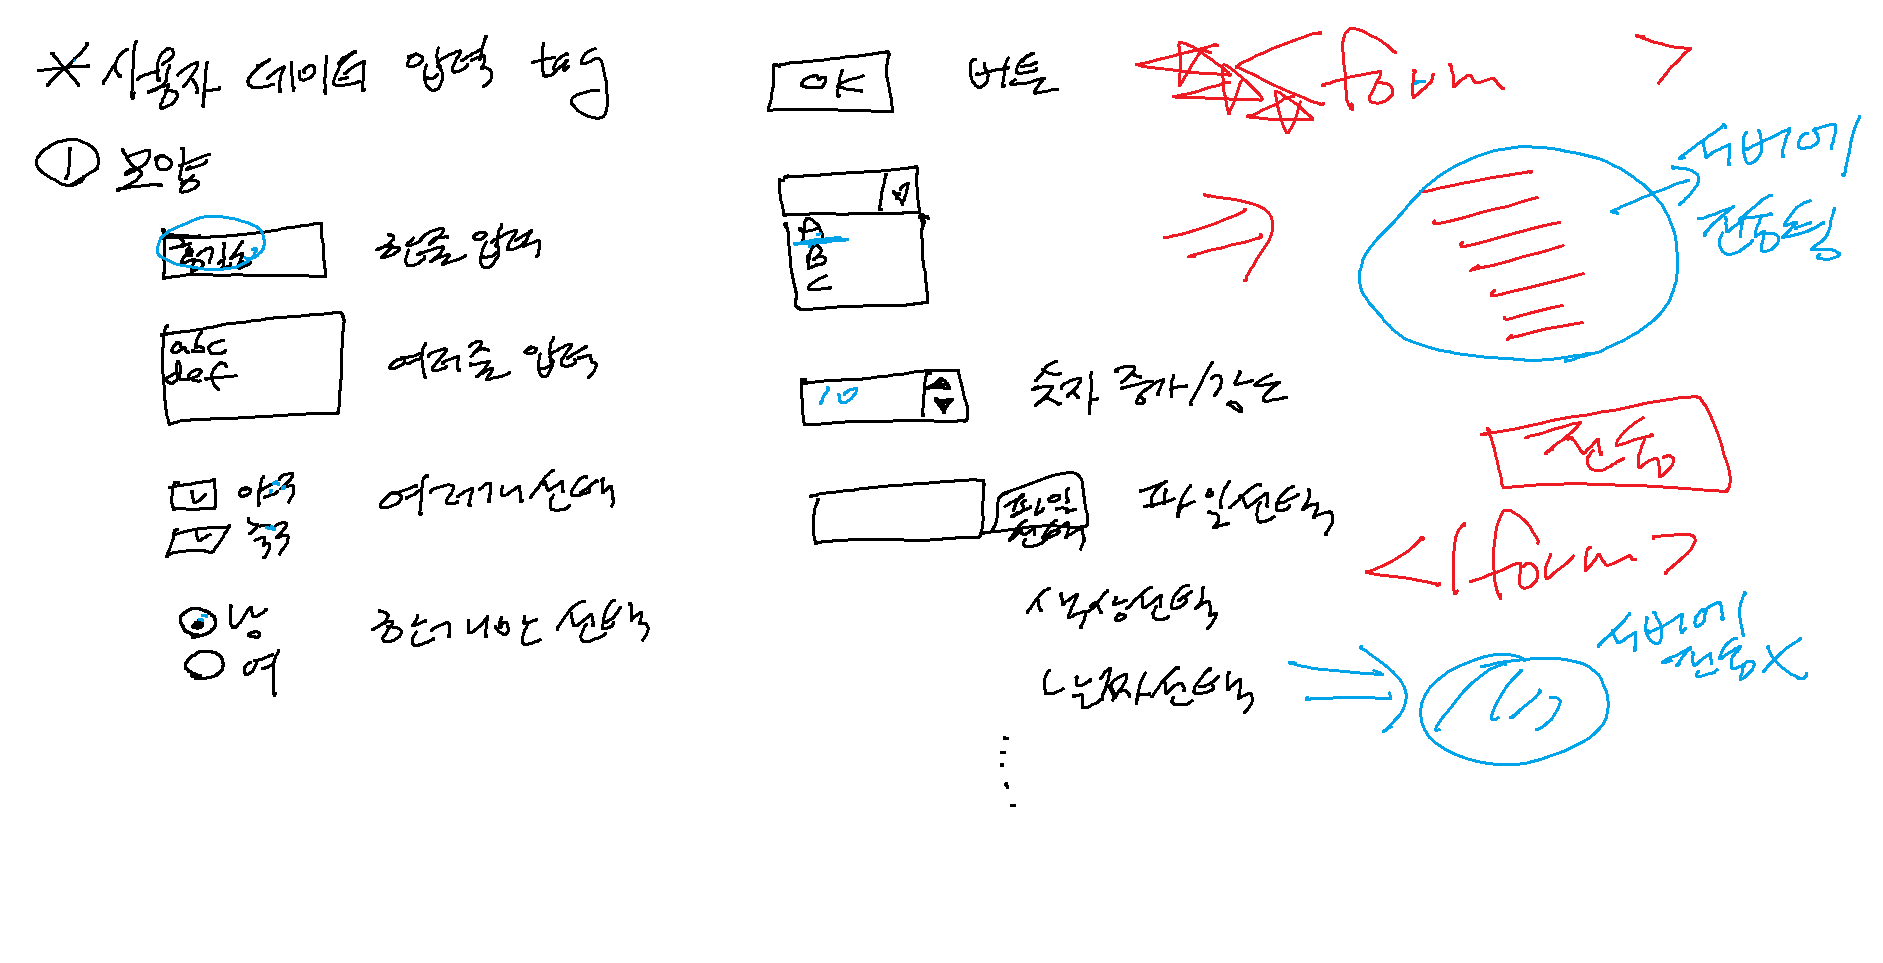 * 사용자 데이터 입력 tag
① 모양
홍길동
한줄 입력
abc
def
여러줄 입력
야구
축구
여러개 선택
남
여
한개만 선택
OK
버튼
A
B
C
10
숫자 증가/감소
파일
선택
파일선택
색상선택
날짜선택
<form >
서버에
전송됨
전송
</form>
서버에
전송X